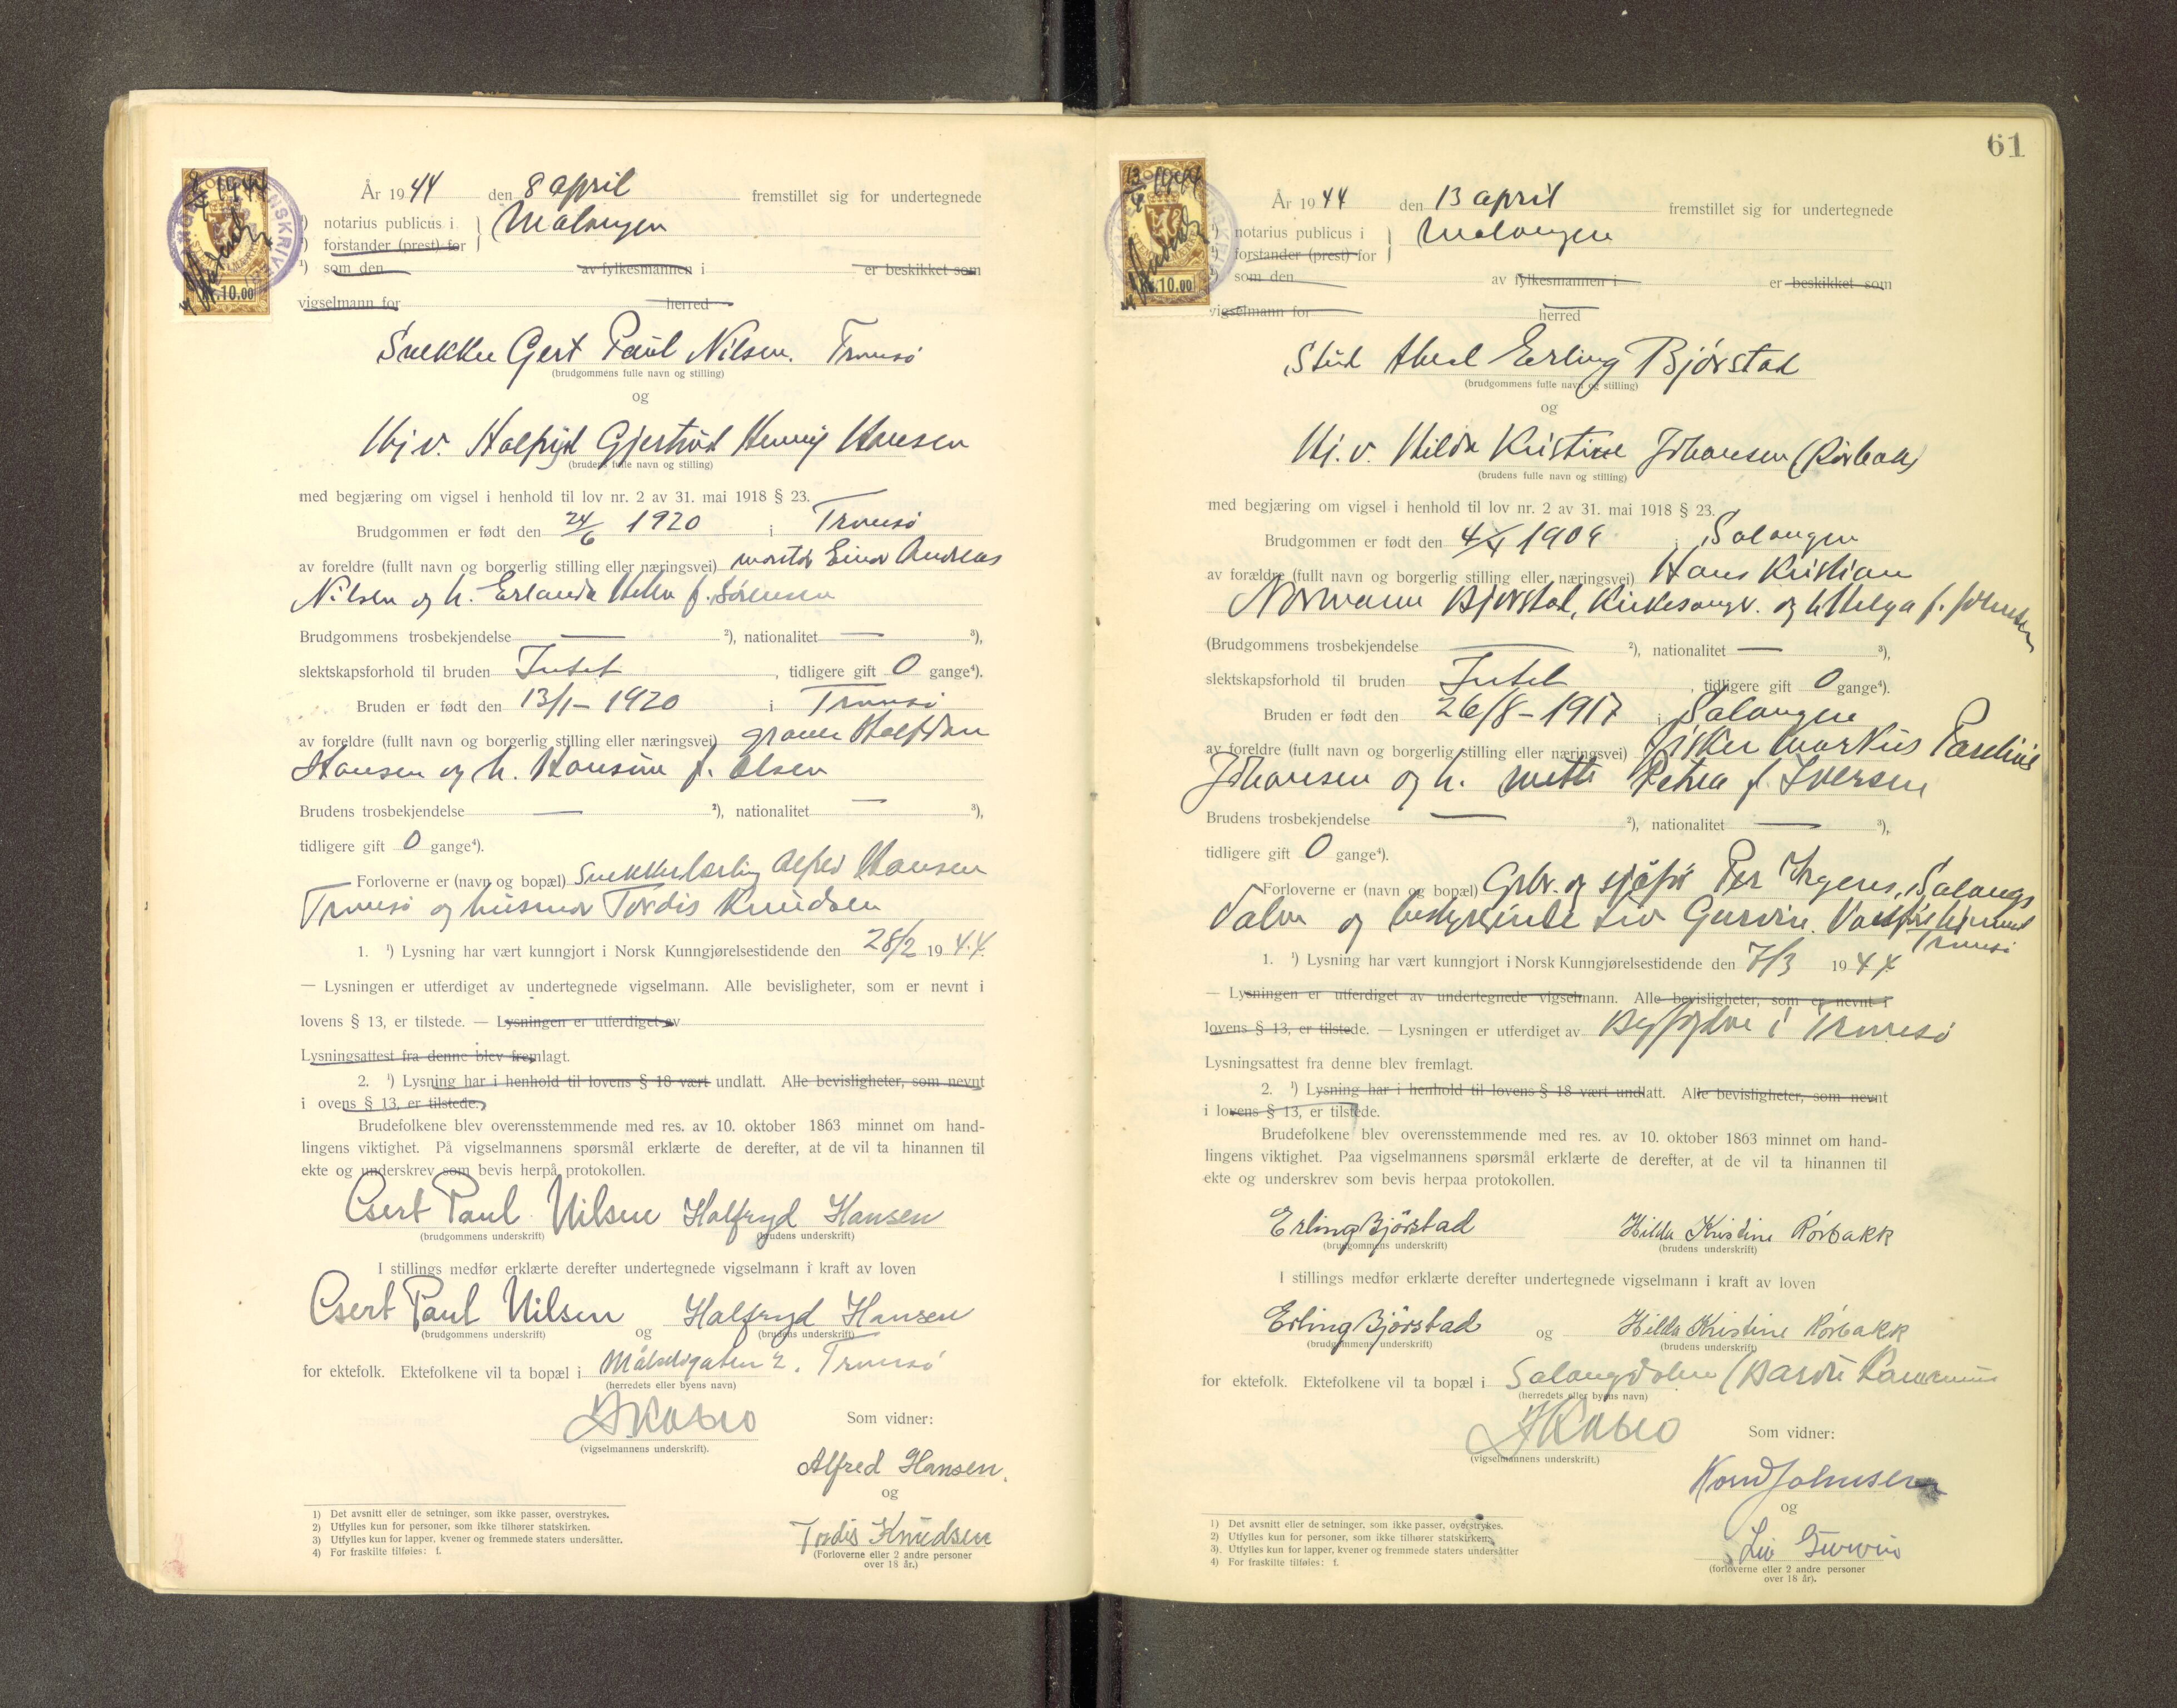 År 1944 den 8 april fremstillet sig for undertegnede
¹) notarius publicus i Malangen
¹) forstander (prest) for
¹) som den av fylkesmannen i er beskikket som
vigselmann for herred
10.00
Snekker Gert Paul Nilsen. Tromsö
(brudgommens fulle navn og stilling)
og
Hj.v. Halfryd Gjertrud Henny Hansen
(brudens fulle navn og stilling)
med begjæring om vigsel i henhold til lov nr. 2 av 31. mai 1918 § 23.
Brudgommen er født den 24/6 1920 i Tromsö
av foreldre (fullt navn og borgerlig stilling eller næringsvei) montör Einar Andreas
Nilsen og h. Erlanda f. Sörensen
Brudgommens trosbekjendelse — ²), nationalitet — ³),
slektskapsforhold til bruden Intet, tidligere gift 0 gange⁴).
Bruden er født den 13/1 - 1920 i Tromsö
av foreldre (fullt navn og borgerlig stilling eller næringsvei) Halfdan
Hansen og h. Hansine f. Olsen
Brudens trosbekjendelse — ²), nationalitet — ³),
tidligere gift 0 gange⁴).
Forloverne er (navn og bopæl) Snekkerlærling Alfred Hansen
Tromsö og husmor Tordis Knudsen
1. ¹) Lysning har vært kunngjort i Norsk Kunngjørelsestidende den 28/2 1944.
— Lysningen er utferdiget av undertegnede vigselmann. Alle bevisligheter, som er nevnt i
lovens § 13, er tilstede. — Lysningen er utferdiget av
Lysningsattest fra denne blev fremlagt.
2. ¹) Lysning har i henhold til lovens § 18 vært undlatt. Alle bevisligheter, som nevnt
i ovens § 13, er tilstede.
Brudefolkene blev overensstemmende med res. av 10. oktober 1863 minnet om hand-
lingens viktighet. På vigselmannens spørsmål erklærte de derefter, at de vil ta hinannen til
ekte og underskrev som bevis herpå protokollen.
Gert Paul Nilsen Halfryd Hansen
(brudgommens underskrift) (brudens underskrift)
I stillings medfør erklærte derefter undertegnede vigselmann i kraft av loven
Gert Paul Nilsen og Halfryd Hansen
(brudgommens underskrift) (brudens underskrift)
for ektefolk. Ektefolkene vil ta bopæl i Målselvgaten 2. Tromsö
(herredets eller byens navn)
Som vidner:
(vigselmannens underskrift).
Alfred Hansen.
og
Tordis Knudsen
(Forloverne eller 2 andre personer
over 18 år.)
1) Det avsnitt eller de setninger, som ikke passer, overstrykes.
2) Utfylles kun for personer, som ikke tilhører statskirken.
3) Utfylles kun for lapper, kvener og fremmede staters undersåtter.
4) For fraskilte tilføies: f.
61
År 1944 den 13 april fremstillet sig for undertegnede
¹) notarius publicus i Malangen
¹) forstander (prest) for
¹) som den av fylkesmannen i er beskikket som
vigselmann for herred
10.00
Stud Erling Björstad
(brudgommens fulle navn og stilling)
og
Hj.v. Hilda Kristine Johansen (Rörbakk)
(brudens fulle navn og stilling)
med begjæring om vigsel i henhold til lov nr. 2 av 31. mai 1918 § 23.
Brudgommen er født den i Salangen
av forældre (fullt navn og borgerlig stilling eller næringsvei) Hans Kristian
Normann Bjørstad, Kirkesanger og h. Helga f. Johnsen
(Brudgommens trosbekjendelse ²), nationalitet — ³),
slektskapsforhold til bruden Intet, tidligere gift 0 gange⁴).
Bruden er født den 26/8 - 1917 i Salangen
av foreldre (fullt navn og borgerlig stilling eller næringsvei) fisker Markus Parelius
Johansen og h. Mette Petrea f. Iversen
Brudens trosbekjendelse — ²), nationalitet — ³),
tidligere gift 0 gange⁴).
Forloverne er (navn og bopæl) Grbr. og sjåfør Per Salangs
dalen og bestyrerinde Liv
Tromsö
1. ¹) Lysning har vært kunngjort i Norsk Kunngjørelsestidende den 7/3 1944
— Lysningen er utferdiget av undertegnede vigselmann. Alle bevisligheter, som er nevnt i
lovens § 13, er tilstede. — Lysningen er utferdiget av Byfogden i Tromsö
Lysningsattest fra denne blev fremlagt.
2. ¹) Lysning har i henhold til lovens § 18 vært undlatt. Alle bevisligheter, som nevnt
i lovens § 13, er tilstede.
Brudefolkene blev overensstemmende med res. av 10. oktober 1863 minnet om hand-
lingens viktighet. Paa vigselmannens spørsmål erklærte de derefter, at de vil ta hinannen til
ekte og underskrev som bevis herpaa protokollen.
Erling Björstad Hilda Kristine Rörbakk
(brudgommens underskrift) (brudens underskrift)
I stillings medfør erklærte derefter undertegnede vigselmann i kraft av loven
Erling Björstad og Hilda Kristine Rörbakk
(brudgommens underskrift) (brudens underskrift)
for ektefolk. Ektefolkene vil ta bopæl i Salangsdalen (Bardu
(herredets eller byens navn)
Som vidner:
(vigselmannens underskrift.)
Johnsen
og
Liv
(forloverne eller 2 andre personer
over 18 år).
1) Det avsnitt eller de setninger, som ikke passer, overstrykes.
2) Utfylles kun for personer, som ikke tilhører statskirken.
3) Utfylles kun for lapper, kvener og fremmede staters undersåtter
4) For fraskilte tilføies: f.